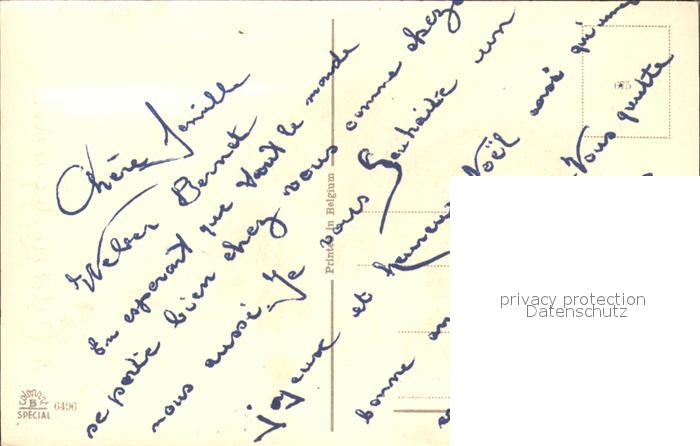 Chère famille
Weber Bernet
En esperant que tout le monde
se porte bien chez vous comme chez
nous aussi, Je vous souhaite un
joyeux et heureux Noël ainsi qu'une
bonne
Vous quitte
Printed in Belgium
COLORPRIX
B
SPECIAL
6496
675
privacy protection
Datenschutz